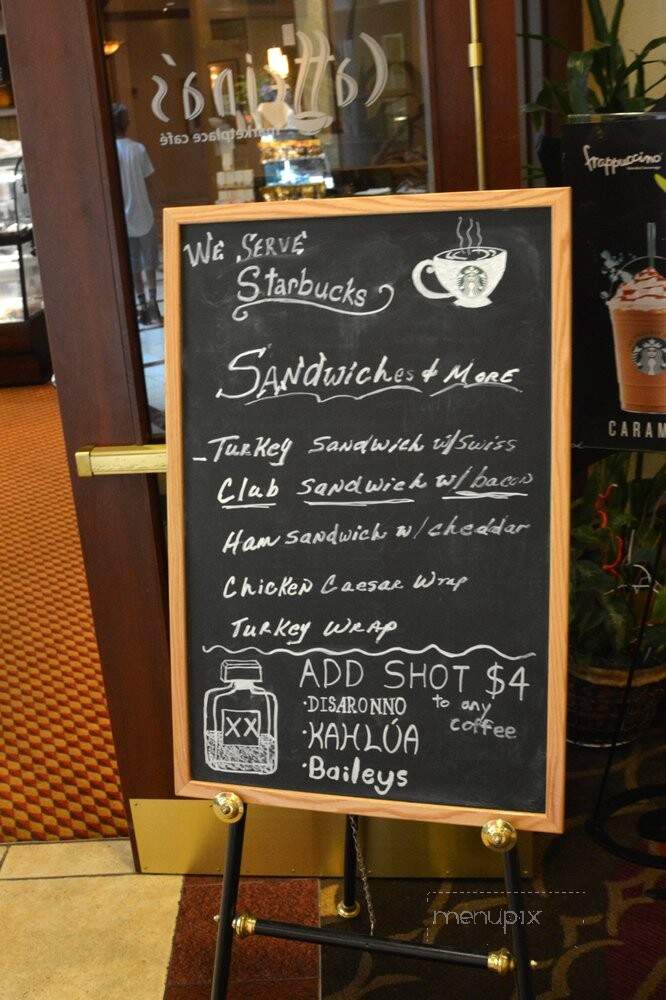 Caffina's
marketplace café
frappuccino
WE SERVE
Starbucks
SANDWICHES & MORE
TURKEY SANDWICH W/SWISS
Club SANDWICH W/bacon
HAM SANDWICH W/cheddar
CHICKEN CAESAR WRAP
TURKEY WRAP
XX
ADD SHOT $4
to any
coffee
·DISARONNO
·KAHLÚA
·Baileys
CARAM
menupix